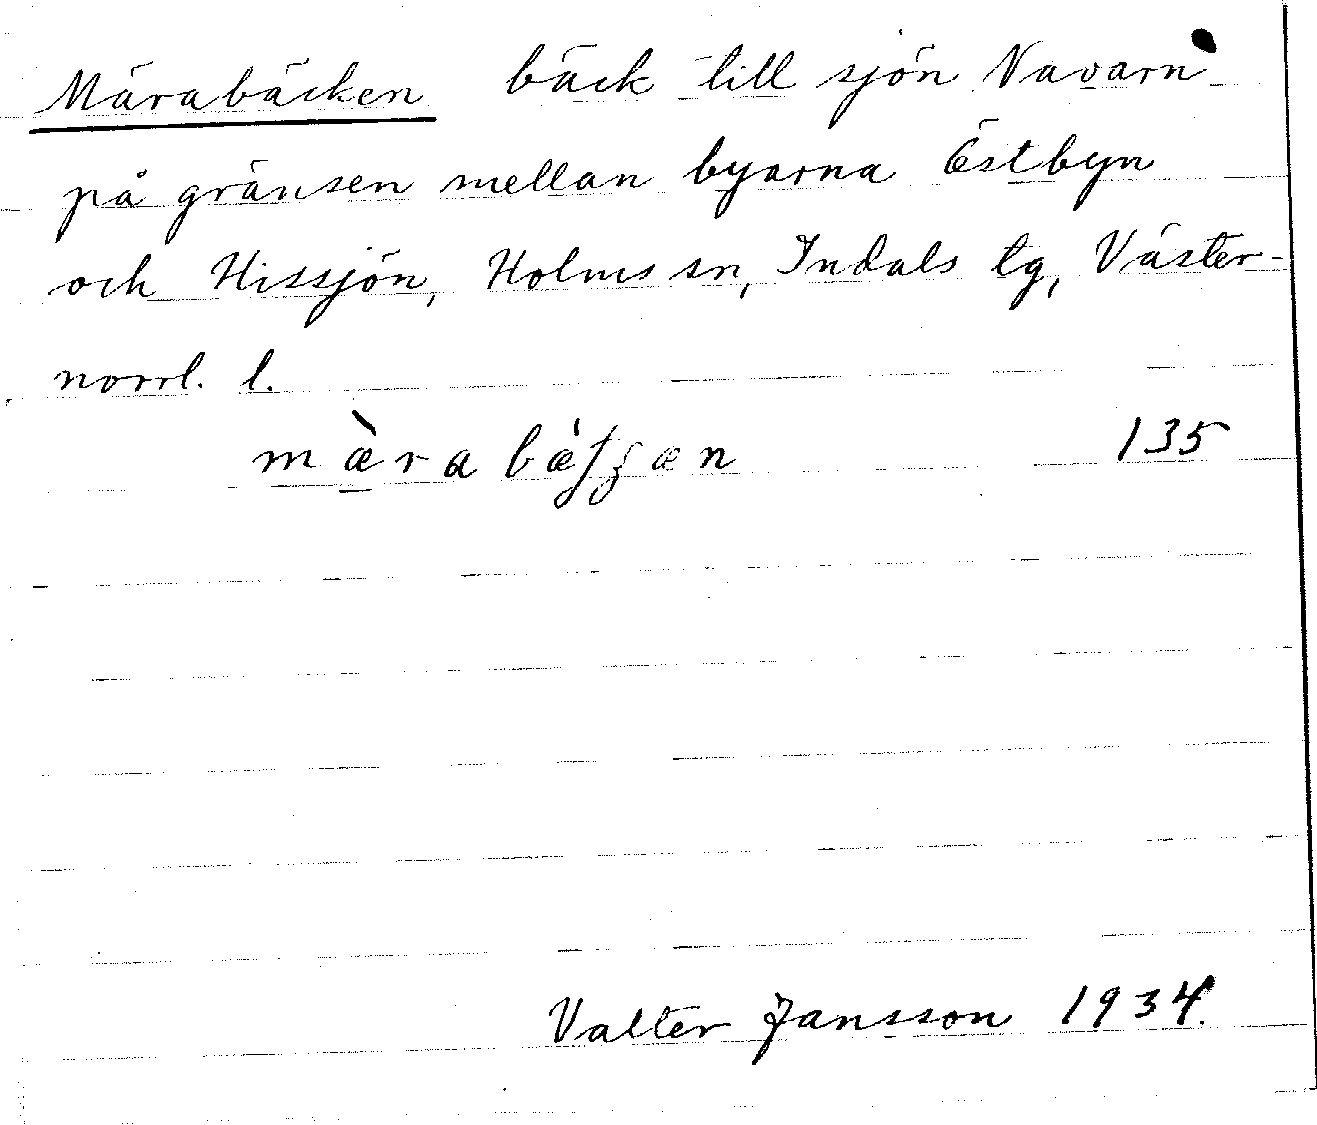 Märabäcken bäck till sjön Navarn
på gränsen mellan byarna Östbyn
och Hissjön, Holms sn, Indals tg, Väster-
norrl. l.
135
Valter Jansson 1934.